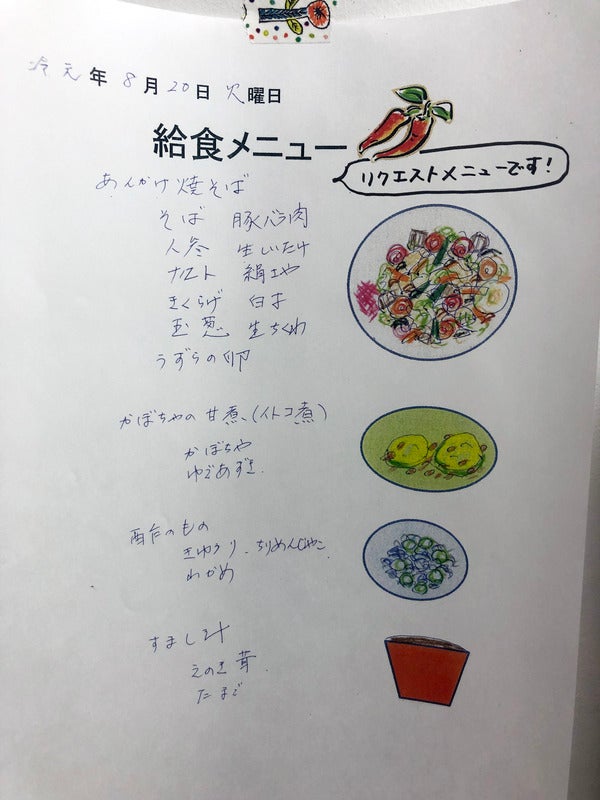 冷元年8月20日火曜日
給食メニュー
リクエストメニューです!
あんかけ焼そば
そば 豚バラ肉
人参 生しいたけ
ナルト 絹さや
きくらげ 白才
玉葱 生ちくわ
うずらの卵
かぼちゃの甘煮、(イトコ煮)
かぼちゃ
ゆであずき.
酢のもの
きゅうり、ちりめんじゃこ
わかめ
すまし汁
えのき茸
たまご